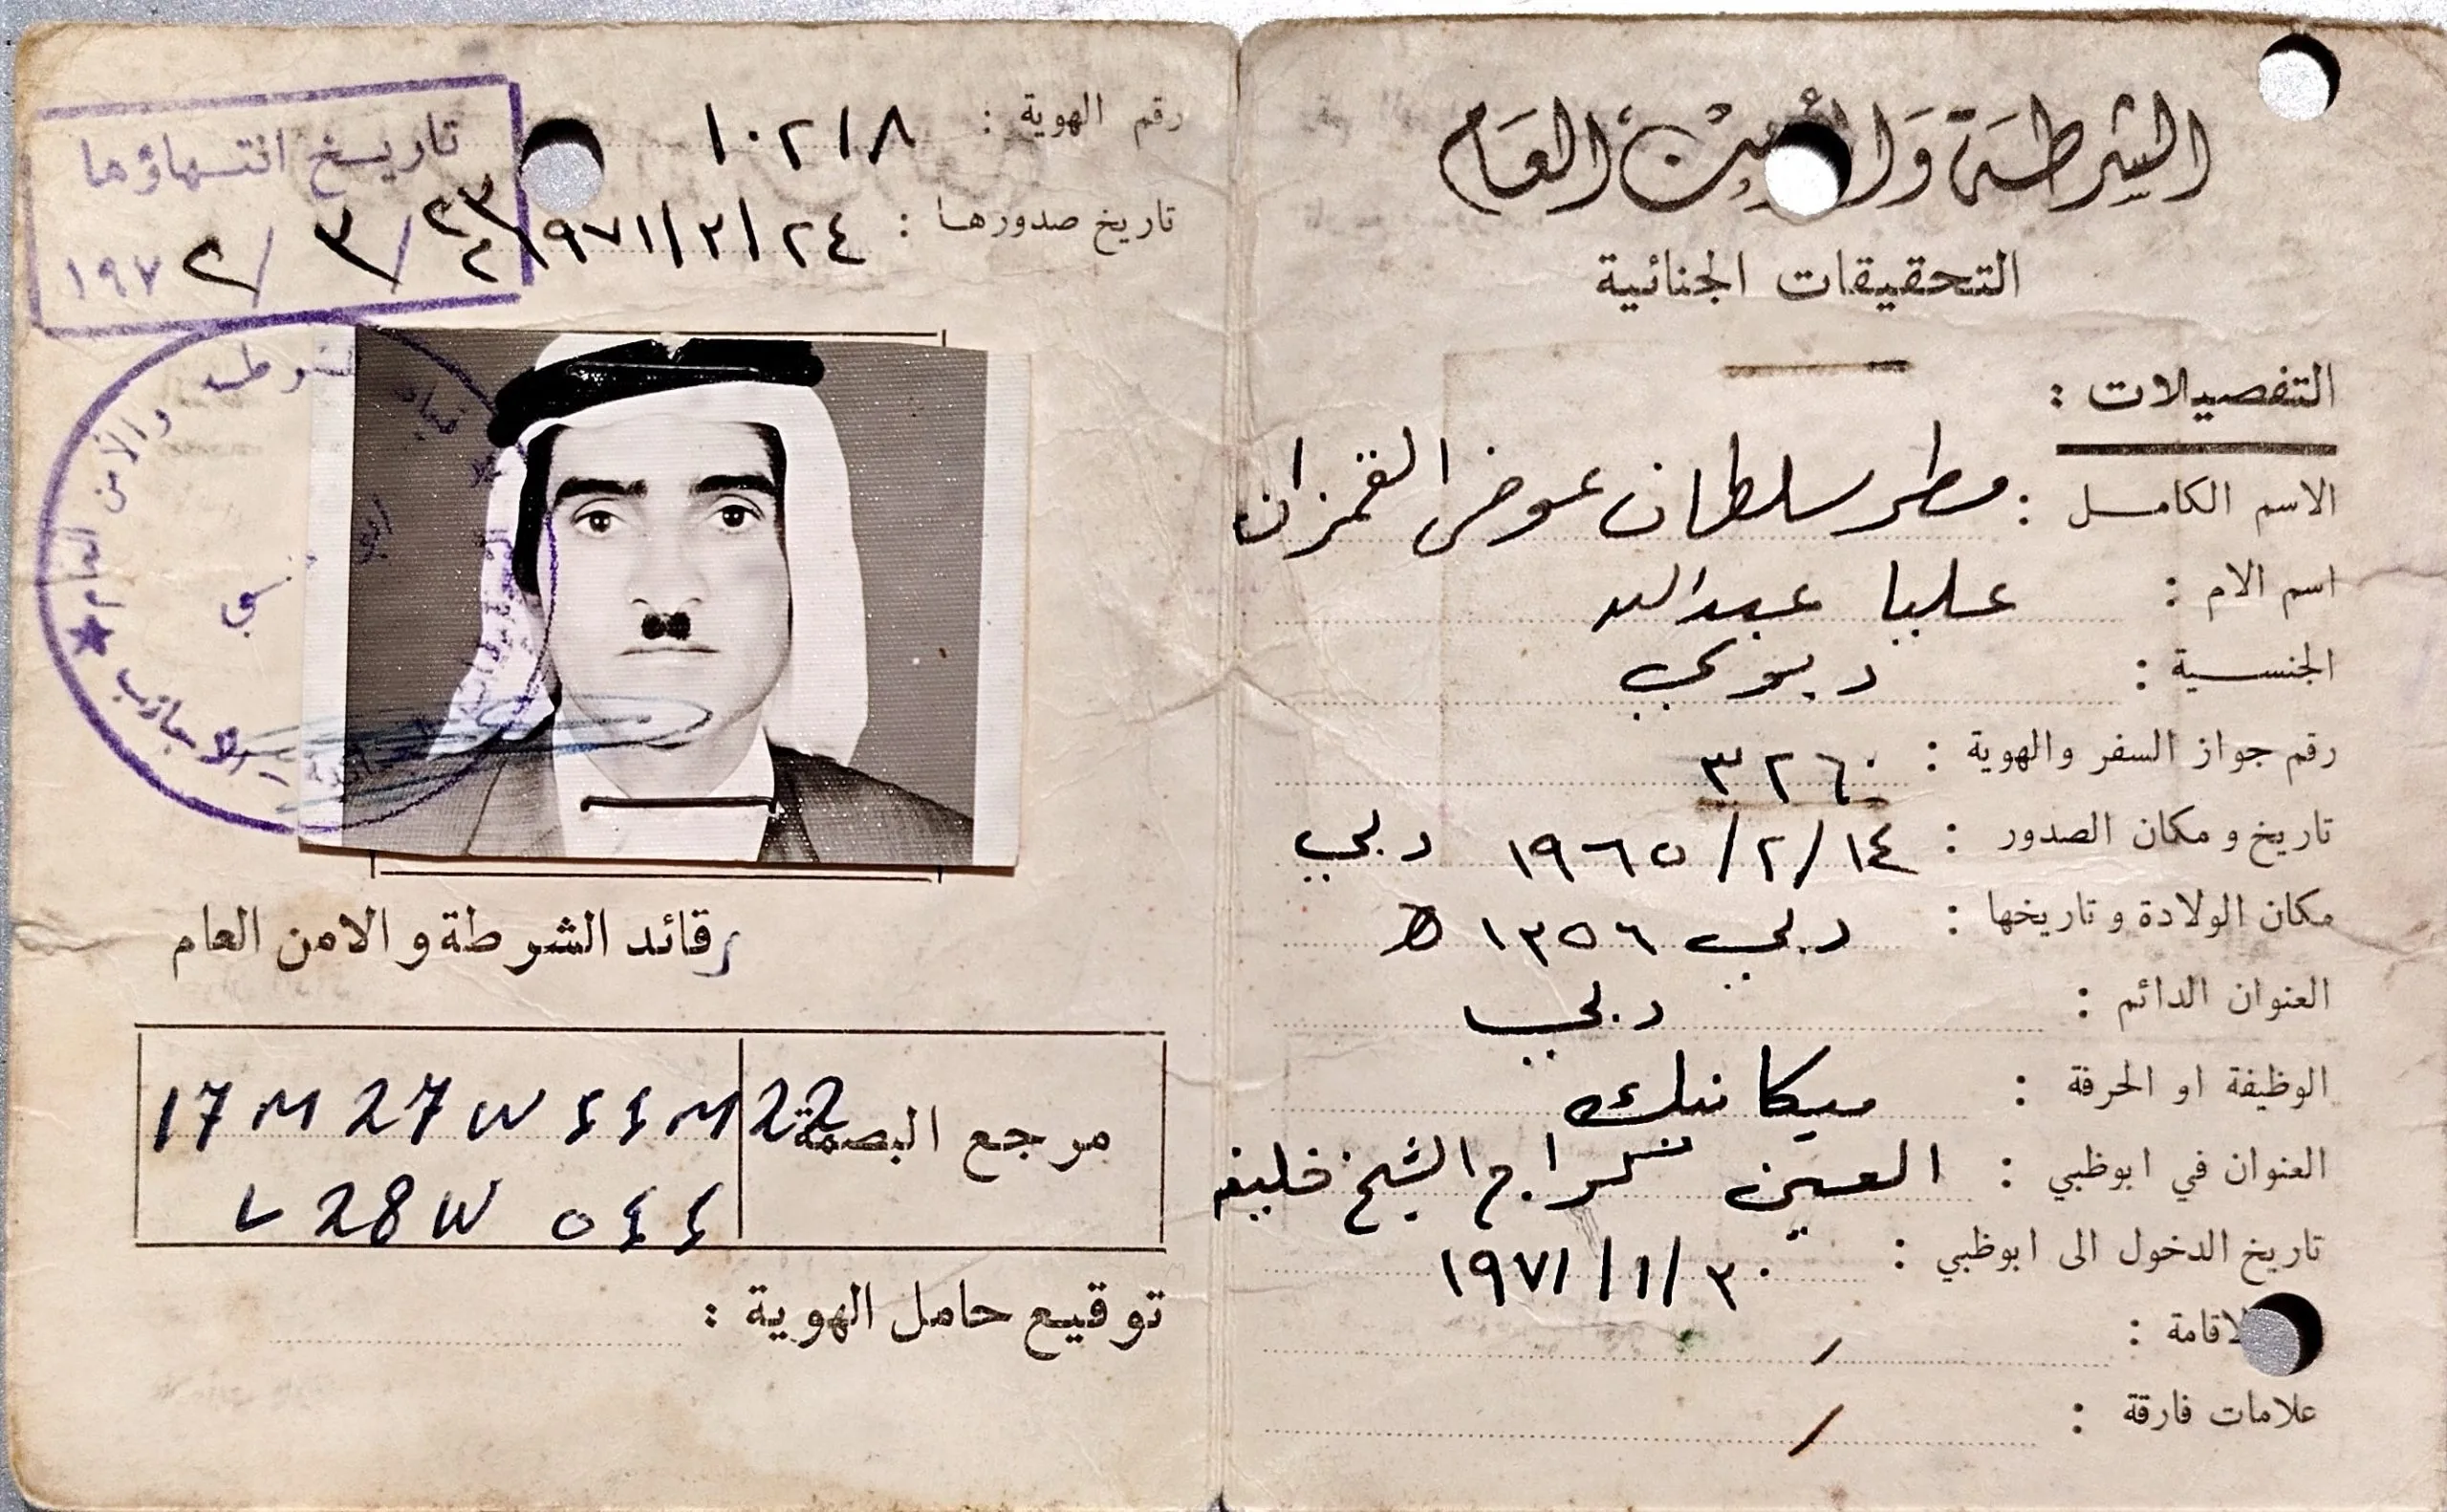 الشرطة والأمن العام
التحقيقات الجنائية
التفصيلات :
الاسم الكامل : مطر سلطان عوض القمزان
اسم الام : عليا عبدالله
الجنسية : دبوي
رقم جواز السفر والهوية : ٣٢٦٠
تاريخ و مكان الصدور : ١٩٦٥/٢/١٤ دبي
مكان الولادة و تاريخها : دبي ١٣٥٦ ه
العنوان الدائم : دبي
الوظيفة او الحرفة : ميكانيك
العنوان في ابوظبي : العين كراج الشيخ خليفه
تاريخ الدخول الى ابوظبي : ١٩٧١/١/٣٠
الاقامة : /
علامات فارقة : /
رقم الهوية : ١٠٢١٨
تاريخ صدورها : ١٩٧١/٢/٢٤
تاريخ انتهاؤها
١٩٧٢/٣/٢٣
الشرطه والأمن العام
قائد الشرطة و الامن العام
مرجع البصمة
17 M 27 W ٤٤ M 22
L 28 W ٥٤٤
توقيع حامل الهوية :